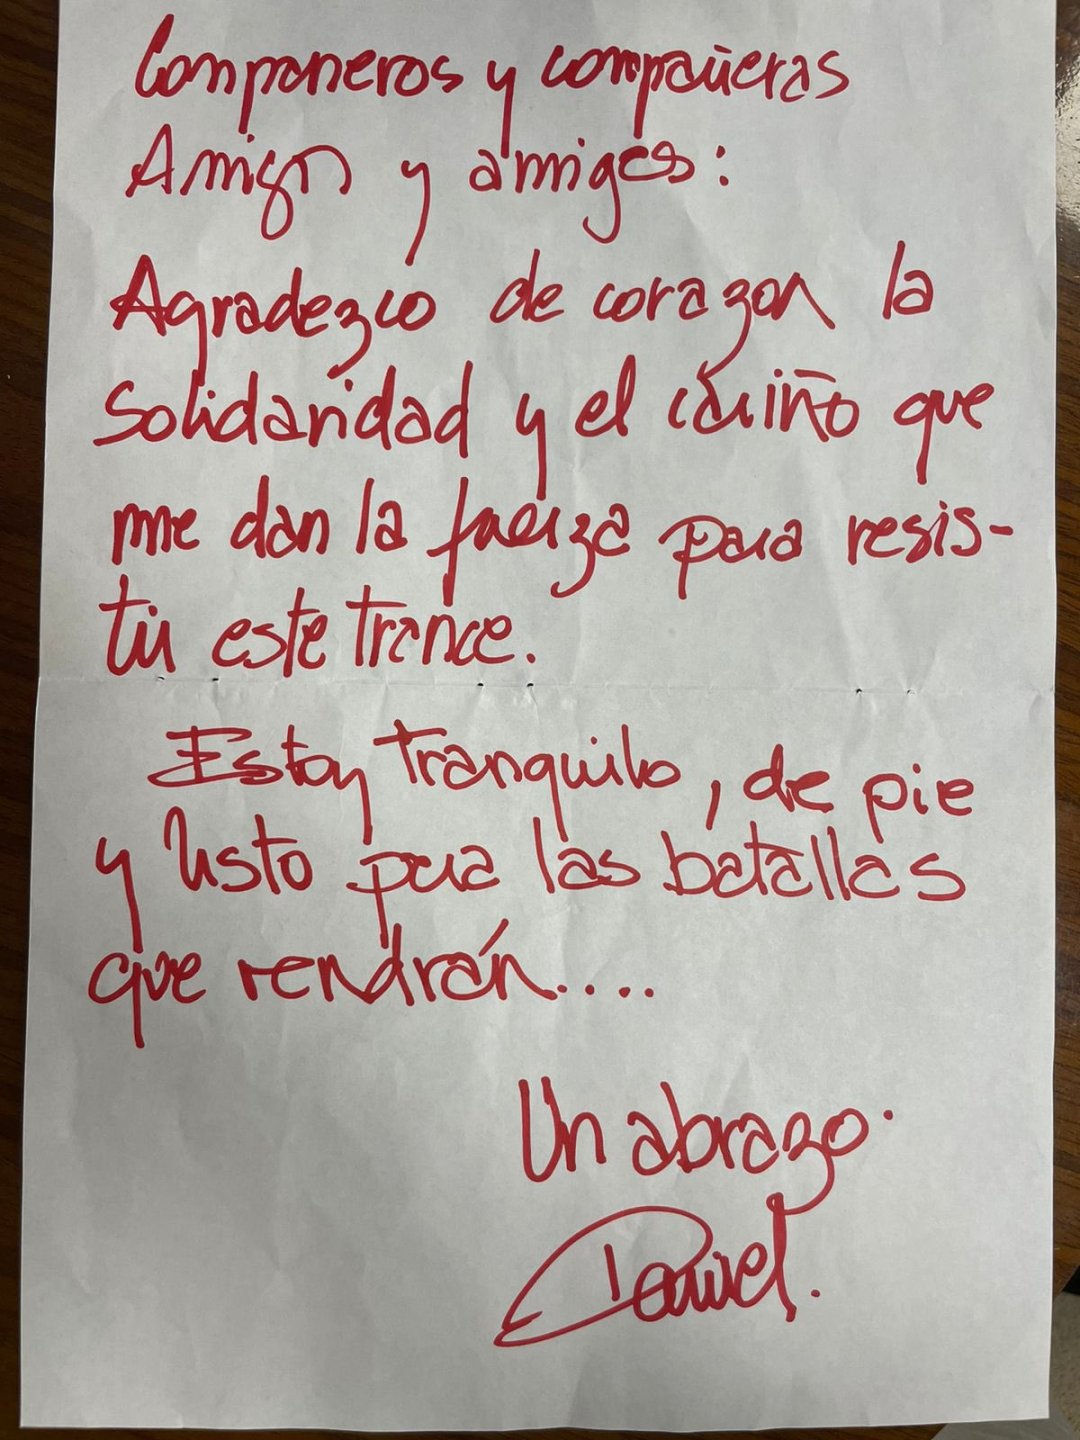 Companeros y compañeras
Amigos y amigas:
Agradezco de corazon la
Solidaridad y el cariño que
me dan la fuerza para resis-
tir este trance.
Estoy tranquilo, de pie
y listo para las batallas
que vendrán....
Un abrazo.
Daniel.